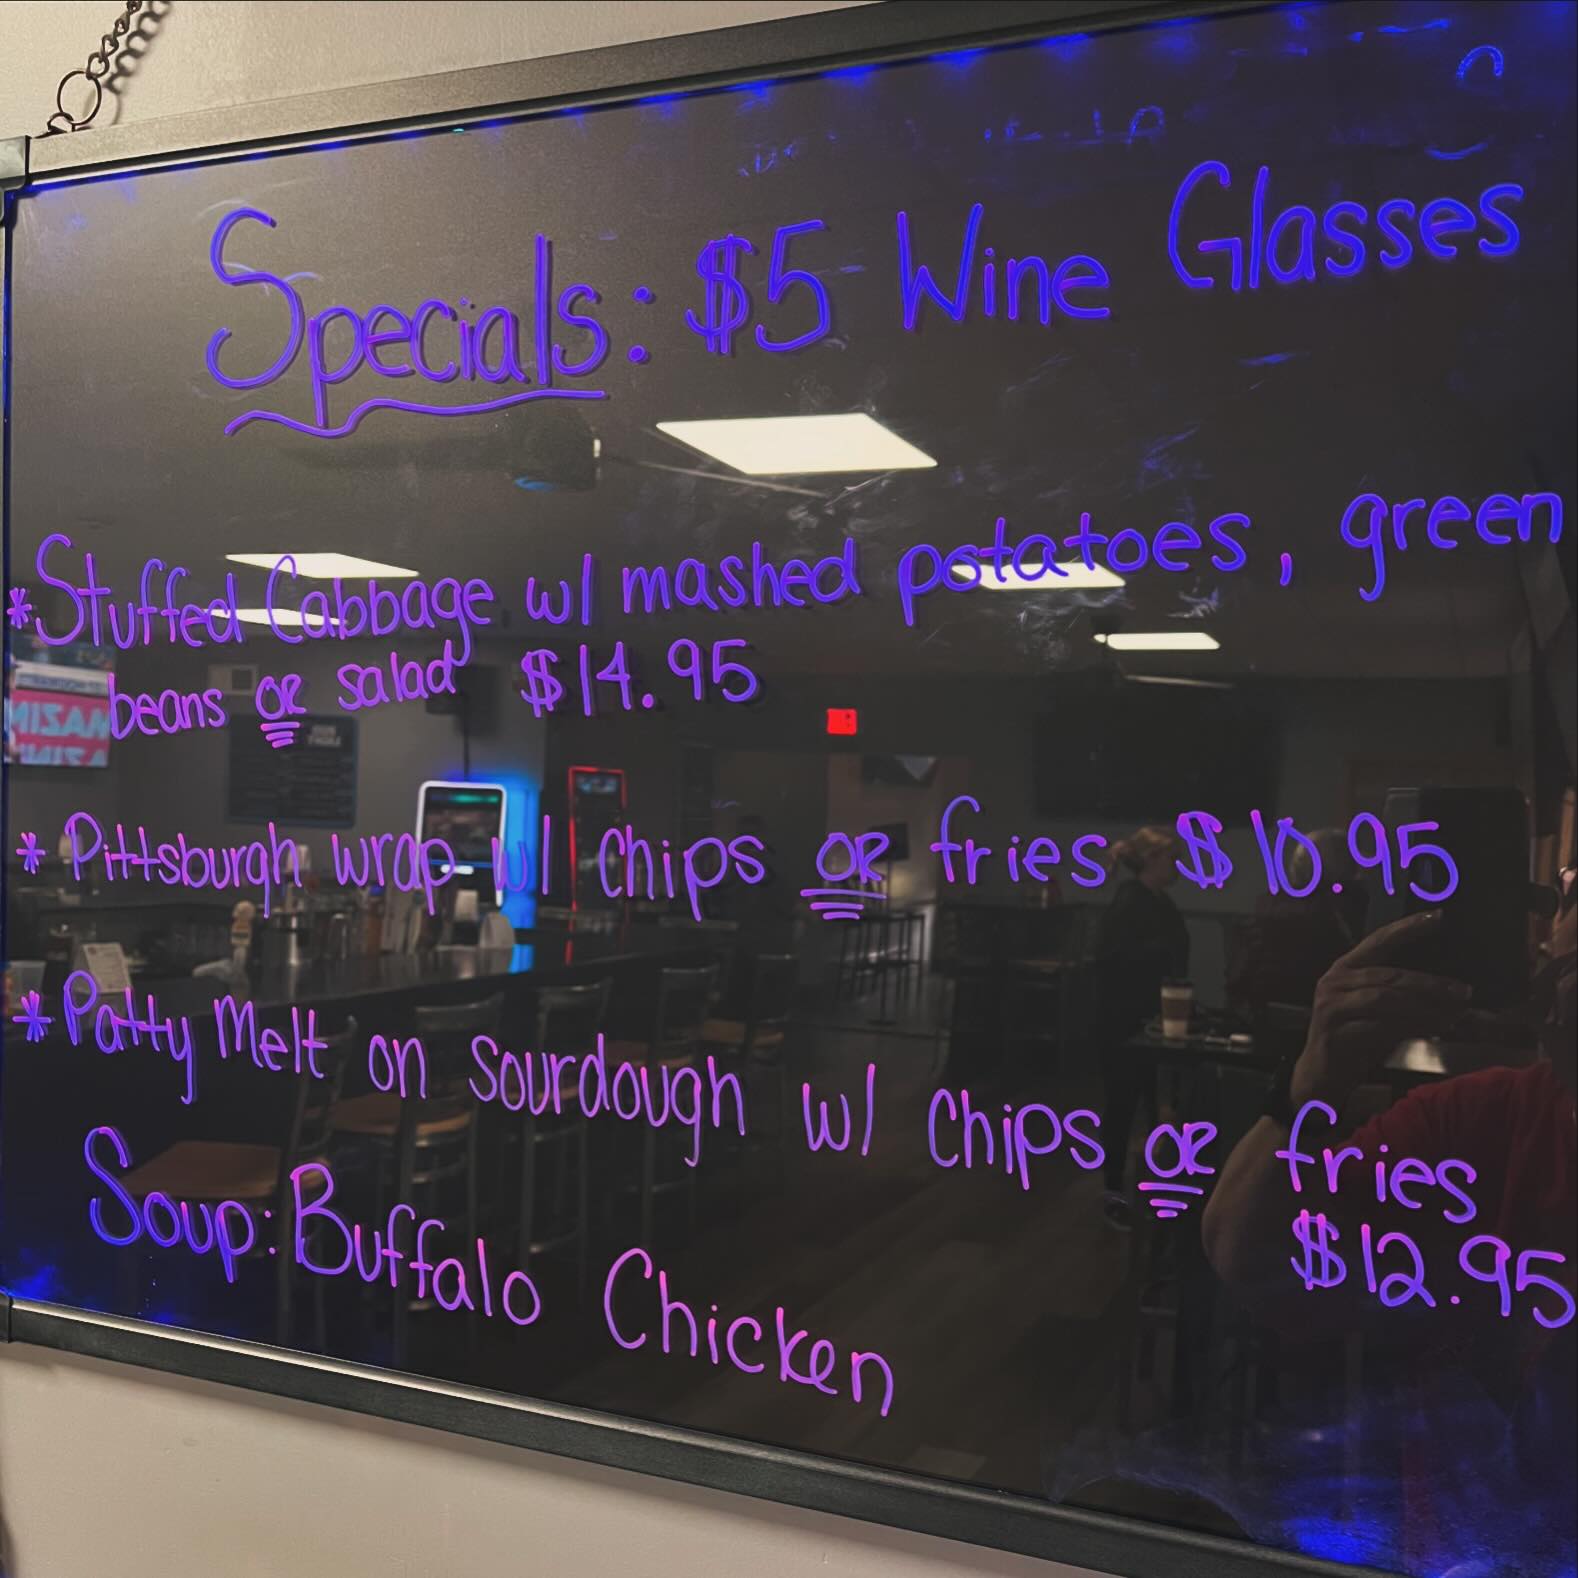 Specials: $5 Wine Glasses
*Stuffed Cabbage w/ mashed potatoes, green
beans OR salad $14.95
* Pittsburgh wrap w/ chips OR fries $10.95
*Patty Melt on sourdough w/ chips OR fries
$12.95
Soup: Buffalo Chicken